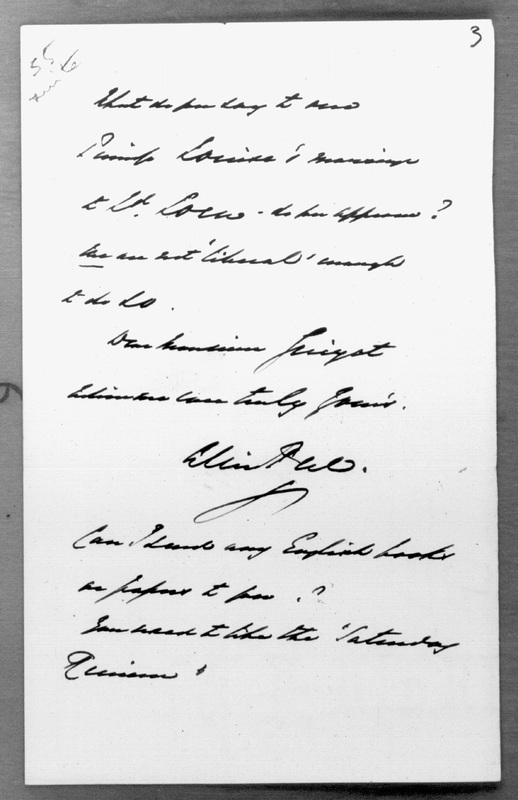 3
What do you say to our
Princess Louise's marriage
to Ld. Lorne - do you approve?
We are not 'liberal' enough
to do so.
Dear Monsieur Guizot
believe me ever truly yours.
Can I send any English books
or papers to you?
You used to like the 'Saturday
Review'